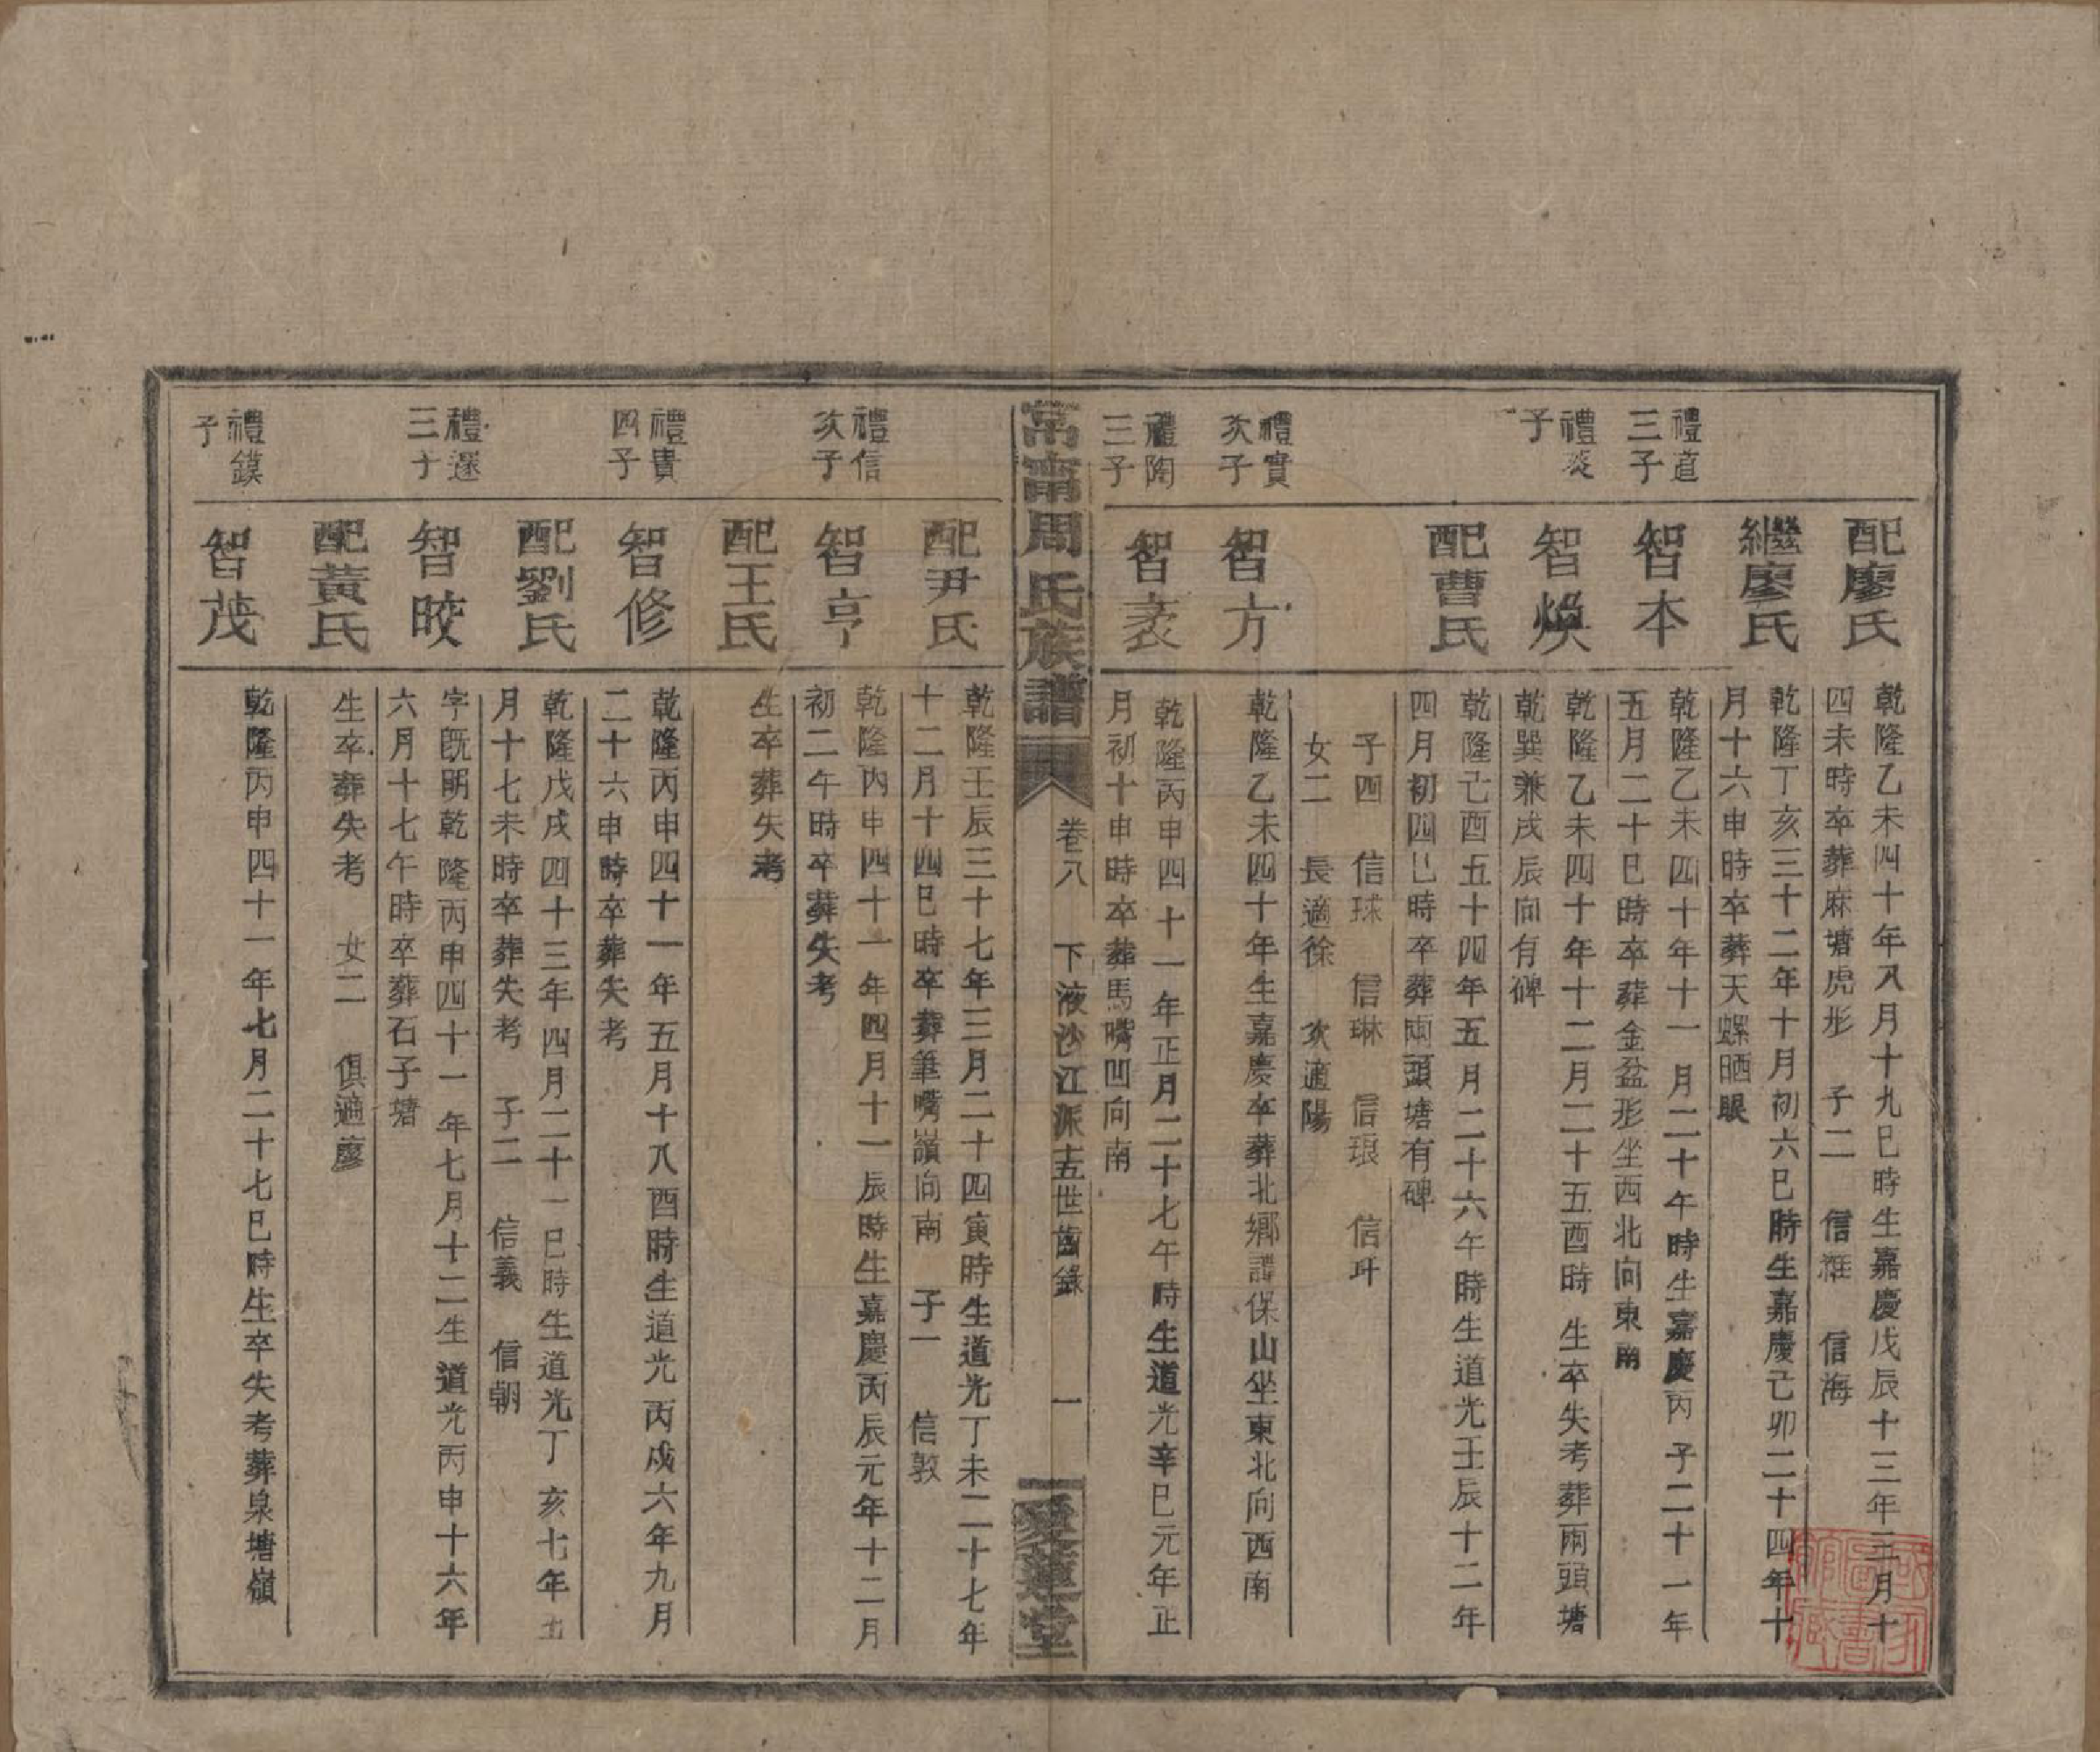 配廖氏
乾隆乙未四十年八月十九巳時生嘉慶戊辰十三年三月十
四未時卒葬麻塘虎形 子二 信 信海
繼廖氏
乾隆丁亥三十二年十月初六巳時生嘉慶己卯二十四年十
月十六申時卒葬天螺晒眼
禮道
三子
智本
乾隆乙未四十年十一月二十午時生嘉慶丙子二十一年
五月二十巳時卒葬金盆形坐西北向東南
禮炎
子
智煥
乾隆乙未四十年十二月二十五酉時生卒失考葬兩頭塘
乾巽兼戌辰向有碑
配曹氏
乾隆己酉五十四年五月二十六午時生道光壬辰十二年
四月初四巳時卒葬兩頭塘有碑
子四 信球 信琳 信琅 信玕
女二 長適徐 次適陽
禮實
次子
智方
乾隆乙未四十年生嘉慶卒葬北鄉譚保山坐東北向西南
禮陶
三子
智袤
乾隆丙申四十一年正月二十七午時生道光辛巳元年正
月初十申時卒葬馬嘴凹向南
常甯周氏族譜
卷八 下液沙江派十五世齒錄 一
愛蓮堂
配尹氏
乾隆壬辰三十七年三月二十四寅時生道光丁未二十七年
十二月十四巳時卒葬筆嘴嶺向南 子一 信敦
禮信
次子
智亨
乾隆丙申四十一年四月十一辰時生嘉慶丙辰元年十二月
初二午時卒葬失考
配王氏
生卒葬失考
禮貴
四子
智修
乾隆丙申四十一年五月十八酉時生道光丙戌六年九月
二十六申時卒葬失考
配劉氏
乾隆戊戌四十三年四月二十一巳時生道光丁亥七年五
月十七未時卒葬失考 子二 信義 信朝
禮還
三子
智晈
字既明乾隆丙申四十一年七月十二生道光丙申十六年
六月十七午時卒葬石子塘
配黃氏
生卒葬失考 女二 俱適廖
禮鏌
子
智茂
乾隆丙申四十一年七月二十七巳時生卒失考葬泉塘嶺